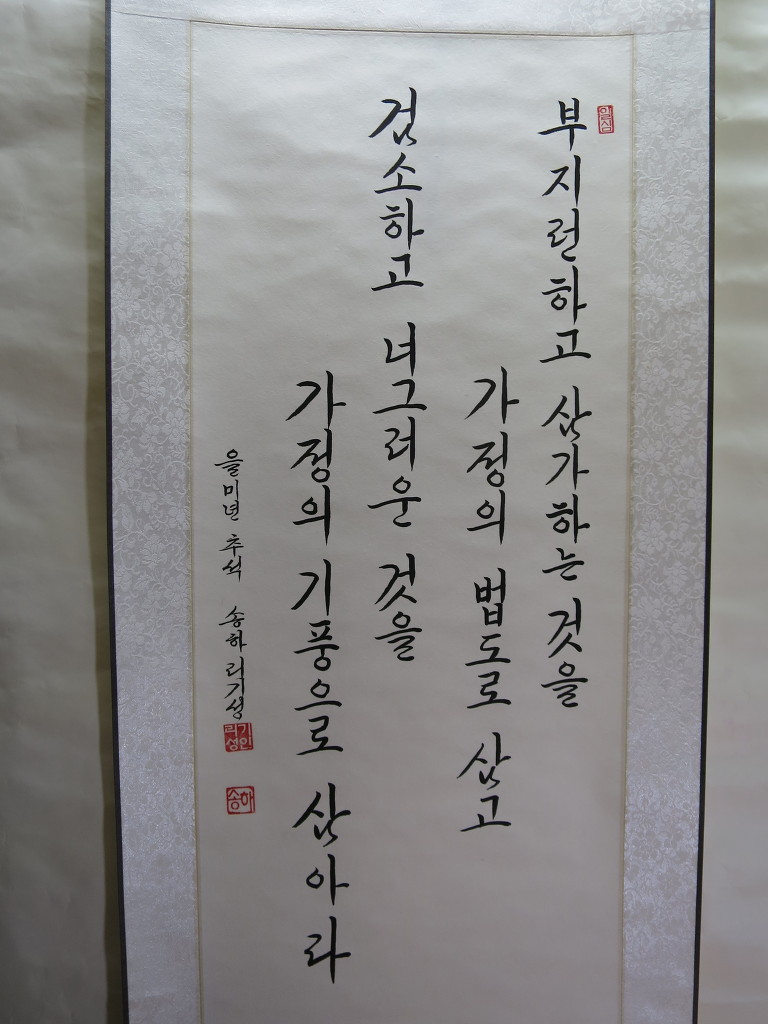 일심
부지런하고 삼가하는 것을
가정의 법도로 삼고
검소하고 너그러운 것을
가정의 기풍으로 삼아라
을미년 추석 송하 리기성
리기성인
송하